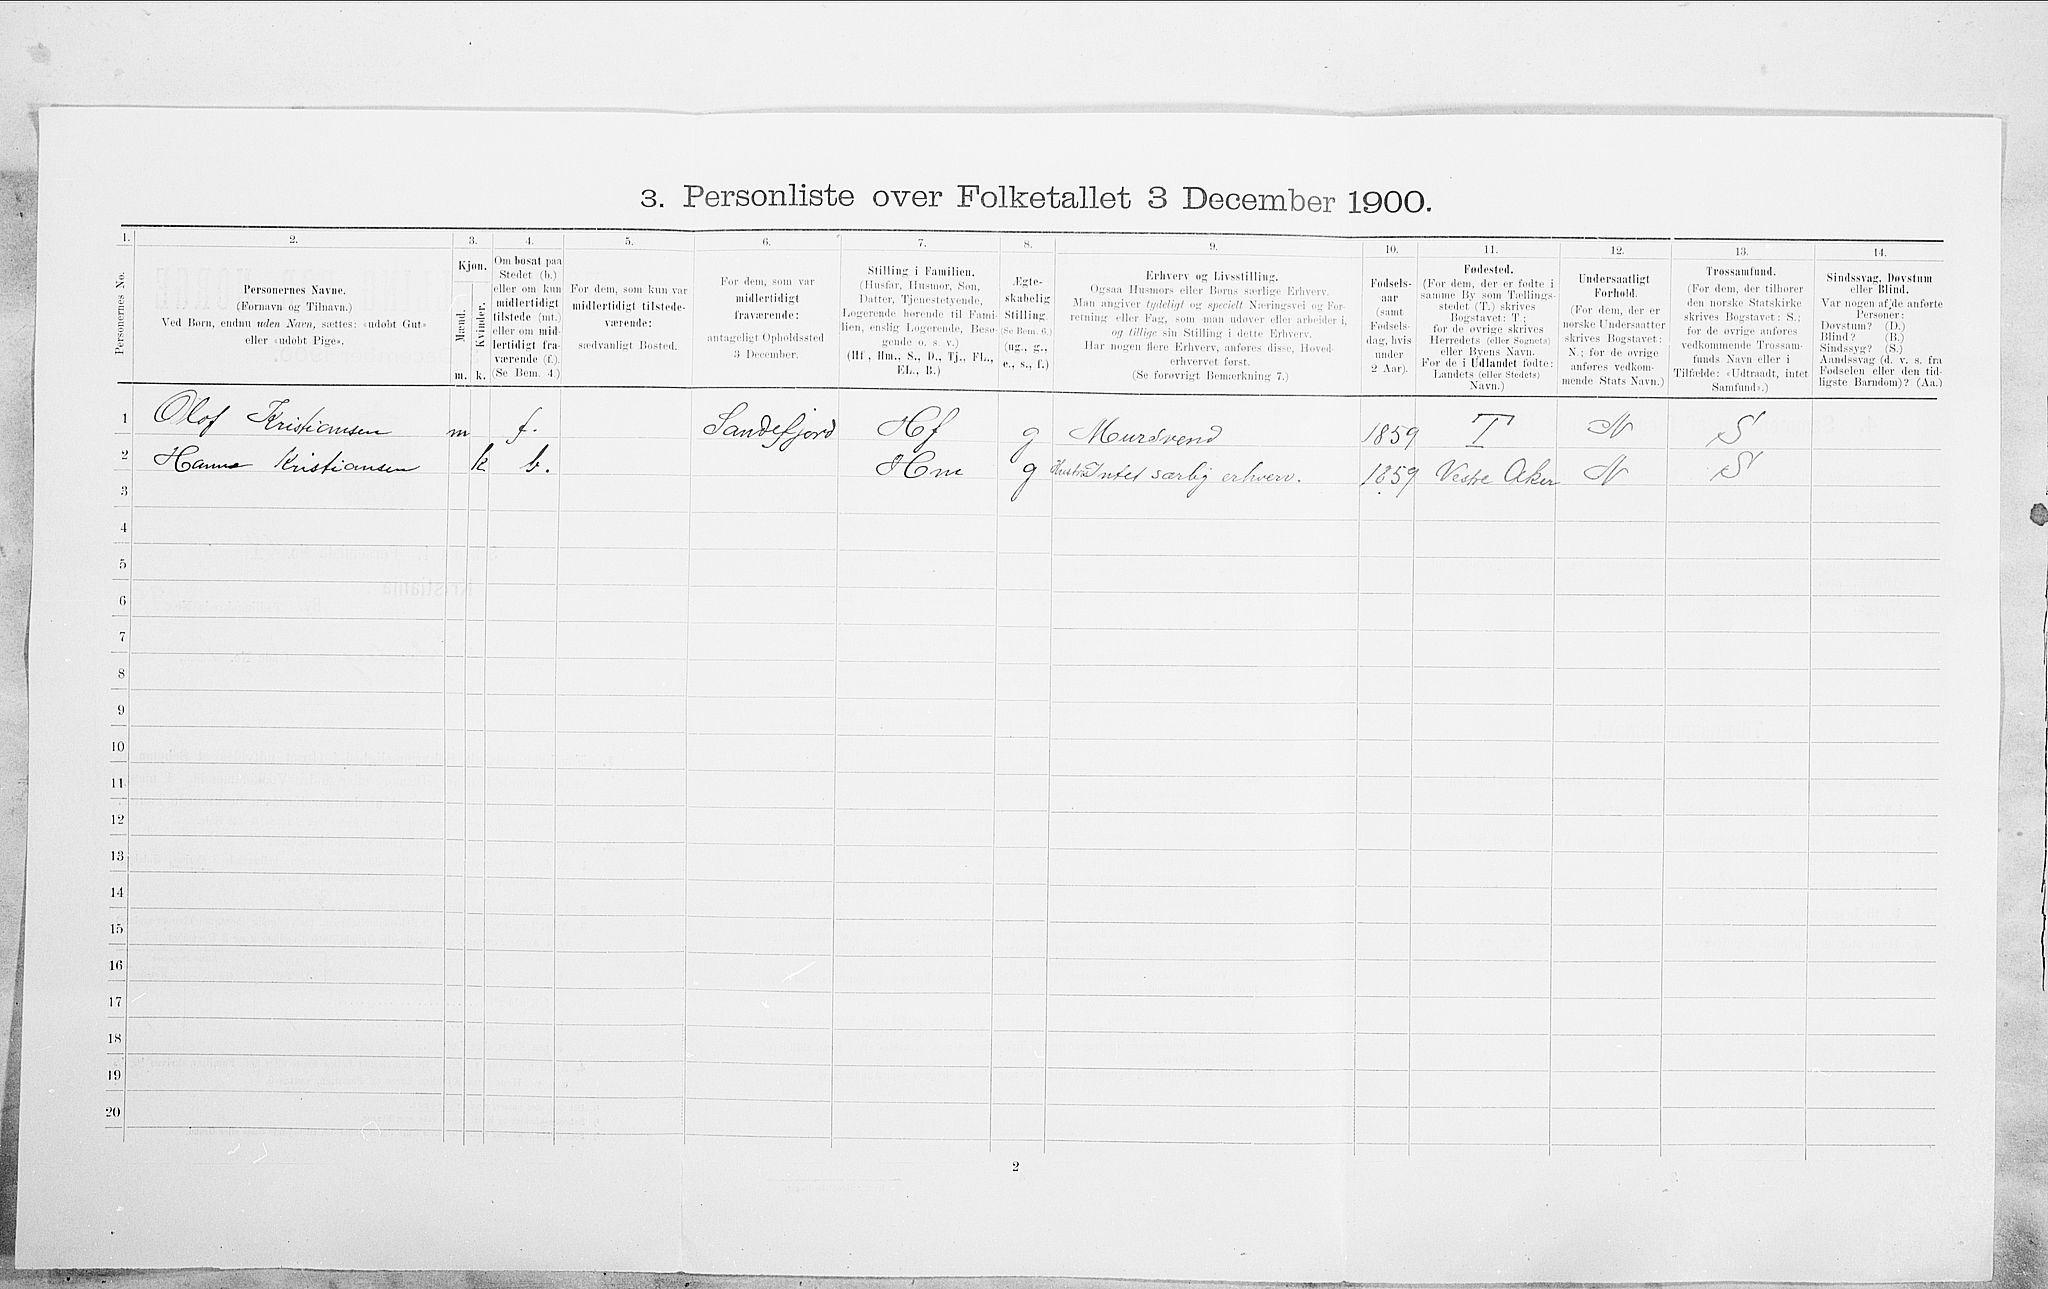 3. Personliste over Folketallet 3 December 1900.
1. 2. 3. 4. 5. 6. 7. 8. 9. 10. 11. 12. 13. 14.
Personernes No.
Personernes Navne.
(Fornavn og Tilnavn.)
Ved Børn, endnu uden Navn, sættes: «udøbt Gut»
eller «udøbt Pige».
Kjøn.
Mænd.
Kvinder.
m. k.
Om bosat paa
Stedet (b.)
eller om kun
midlertidigt
tilstede (mt.)
eller om mid-
lertidigt fra-
værende (f.).
(Se Bem. 4.)
For dem, som kun var
midlertidigt tilstede-
værende:
sædvanligt Bosted.
For dem, som var
midlertidigt
fraværende:
antageligt Opholdssted
3 December.
Stilling i Familien.
(Husfar, Husmor, Søn,
Datter, Tjenestetyende,
Logerende hørende til Fami-
lien, enslig Logerende, Besø-
gende o. s. v.)
(Hf., Hm., S., D., Tj., FL.,
EL., B.)
Ægte-
skabelig
Stilling.
(Se Bem. 6.)
(ug., g.,
e., s., f.)
Erhverv og Livsstilling.
Ogsaa Husmors eller Børns særlige Erhverv.
Man angiver tydeligt og specielt Næringsvei og For-
retning eller Fag, som man udøver eller arbeider i,
og tillige sin Stilling i dette Erhverv.
Har nogen flere Erhverv, anføres disse, Hoved-
erhvervet først.
(Se forøvrigt Bemærkning 7.)
Fødsels-
aar
(samt
Fødsels-
dag, hvis
under
2 Aar).
Fødested.
(For dem, der er fødte i
samme By som Tællings-
stedet (T.) skrives
Bogstavet: T;
for de øvrige skrives
Herredets (eller Sognets)
eller Byens Navn.
For de i Udlandet fødte:
Landets (eller Stedets)
Navn.)
Undersaatligt
Forhold.
(For dem, der er
norske Undersaatter
skrives Bogstavet:
N.; for de øvrige
anføres vedkom-
mende Stats Navn.)
Trossamfund.
(For dem, der tilhører
den norske Statskirke
skrives Bogstavet: S.;
for de øvrige anføres
vedkommende Trossam-
funds Navn eller i
Tilfælde: «Udtraadt, intet
Samfund».)
Sindssvag, Døvstum
eller Blind.
Var nogen af de anførte
Personer:
Døvstum? (D.)
Blind? (B.)
Sindssyg? (S.)
Aandssvag (d. v. s. fra
Fødselen eller den tid-
ligste Barndom)? (Aa.)
1 Olof Kristiansen m f. Sandefjord Hf g Mursvend 1859 T N S
2 Hanna Kristiansen k b. Hm g Hustru Intet særlig erhverv. 1859 Vestre Aker N S
3
4
5
6
7
8
9
10
11
12
13
14
15
16
17
18
19
20
2